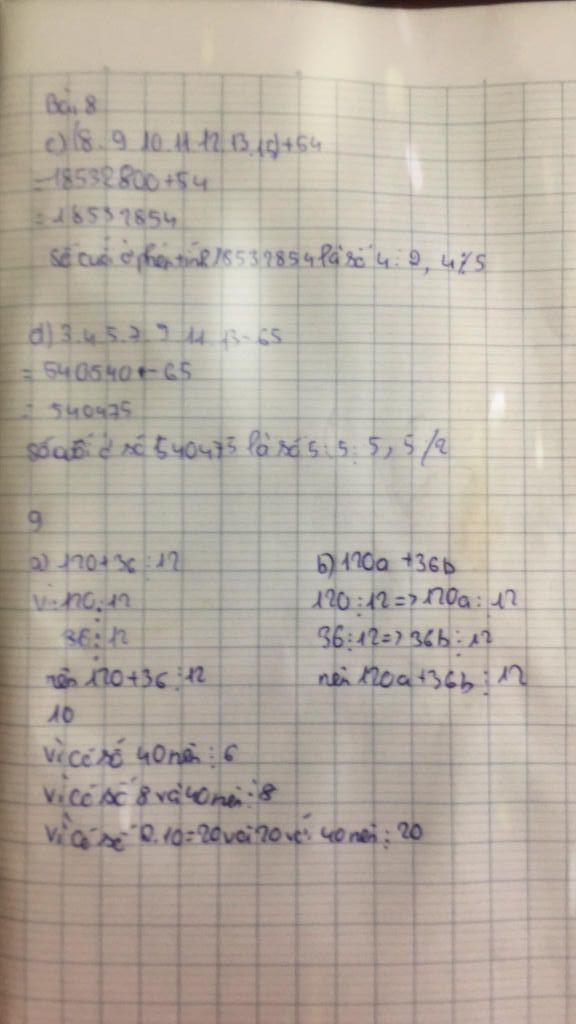 Bài 8
c) (8.9.10.11.12.13.15)+54
=18532800+54
=18532854
Số cuối ở phép tính 18532854 là số 4⋮2, 4⋮̸5
d) 3.4.5.7.9.11.13-65
= 540540-65
= 540475
số cuối ở số 540475 là số 5⋮5, 5⋮̸2
9
a) 120+36⋮12
vì 120⋮12
36⋮12
nên 120+36⋮12
b) 120a+36b
120⋮12=>120a⋮12
36⋮12=>36b⋮12
nên 120a+36b⋮12
10
vì có số 40 nên ⋮6
vì có số 8 và 40 nên ⋮8
vì có số 2.10=20 và 20 và 40 nên ⋮20